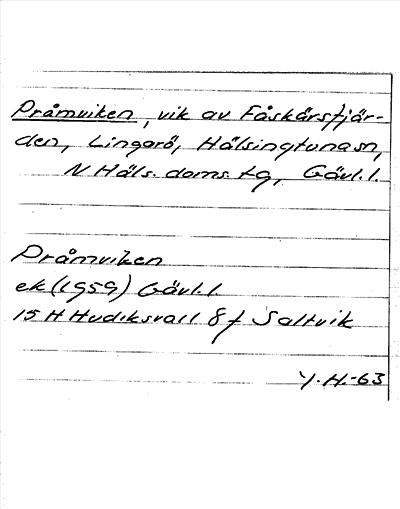 Pråmviken, vik av Fåskärsfjär-
den, Lingarö, Hälsingtuna sn,
N Häls. doms. tg, Gävl. l.
Pråmviken
ek (1959) Gävl. l
15 H Hudiksvall 8 f Saltvik
Y. H.-63